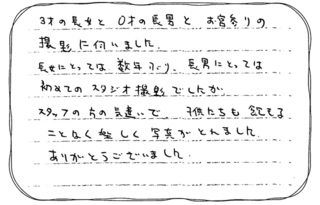 3才の長女と 0才の長男と お宮参りの
撮影に伺いました。
長女にとっては 数年ぶり、長男にとっては
初めてのスタジオ撮影でしたが、
スタッフの方の気遣いで 子供たちも 飽きる
ことなく 楽しく 写真がとれました。
ありがとうございました。